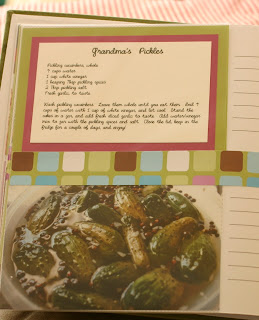 Grandma's Pickles
Pickling cucumbers, whole
9 cups water
1 cup white vinegar
1 heaping Tbsp pickling spices
2 Tbsp pickling salt
Fresh garlic, to taste
Wash pickling cucumbers. Leave them whole until you eat them. Boil 9
cups of water with 1 cup of white vinegar, and let cool. Stand the
cukes in a jar, and add fresh sliced garlic to taste. Add water/vinegar
mix to jar with the pickling spices and salt. Close the lid, keep in the
fridge for a couple of days, and enjoy!